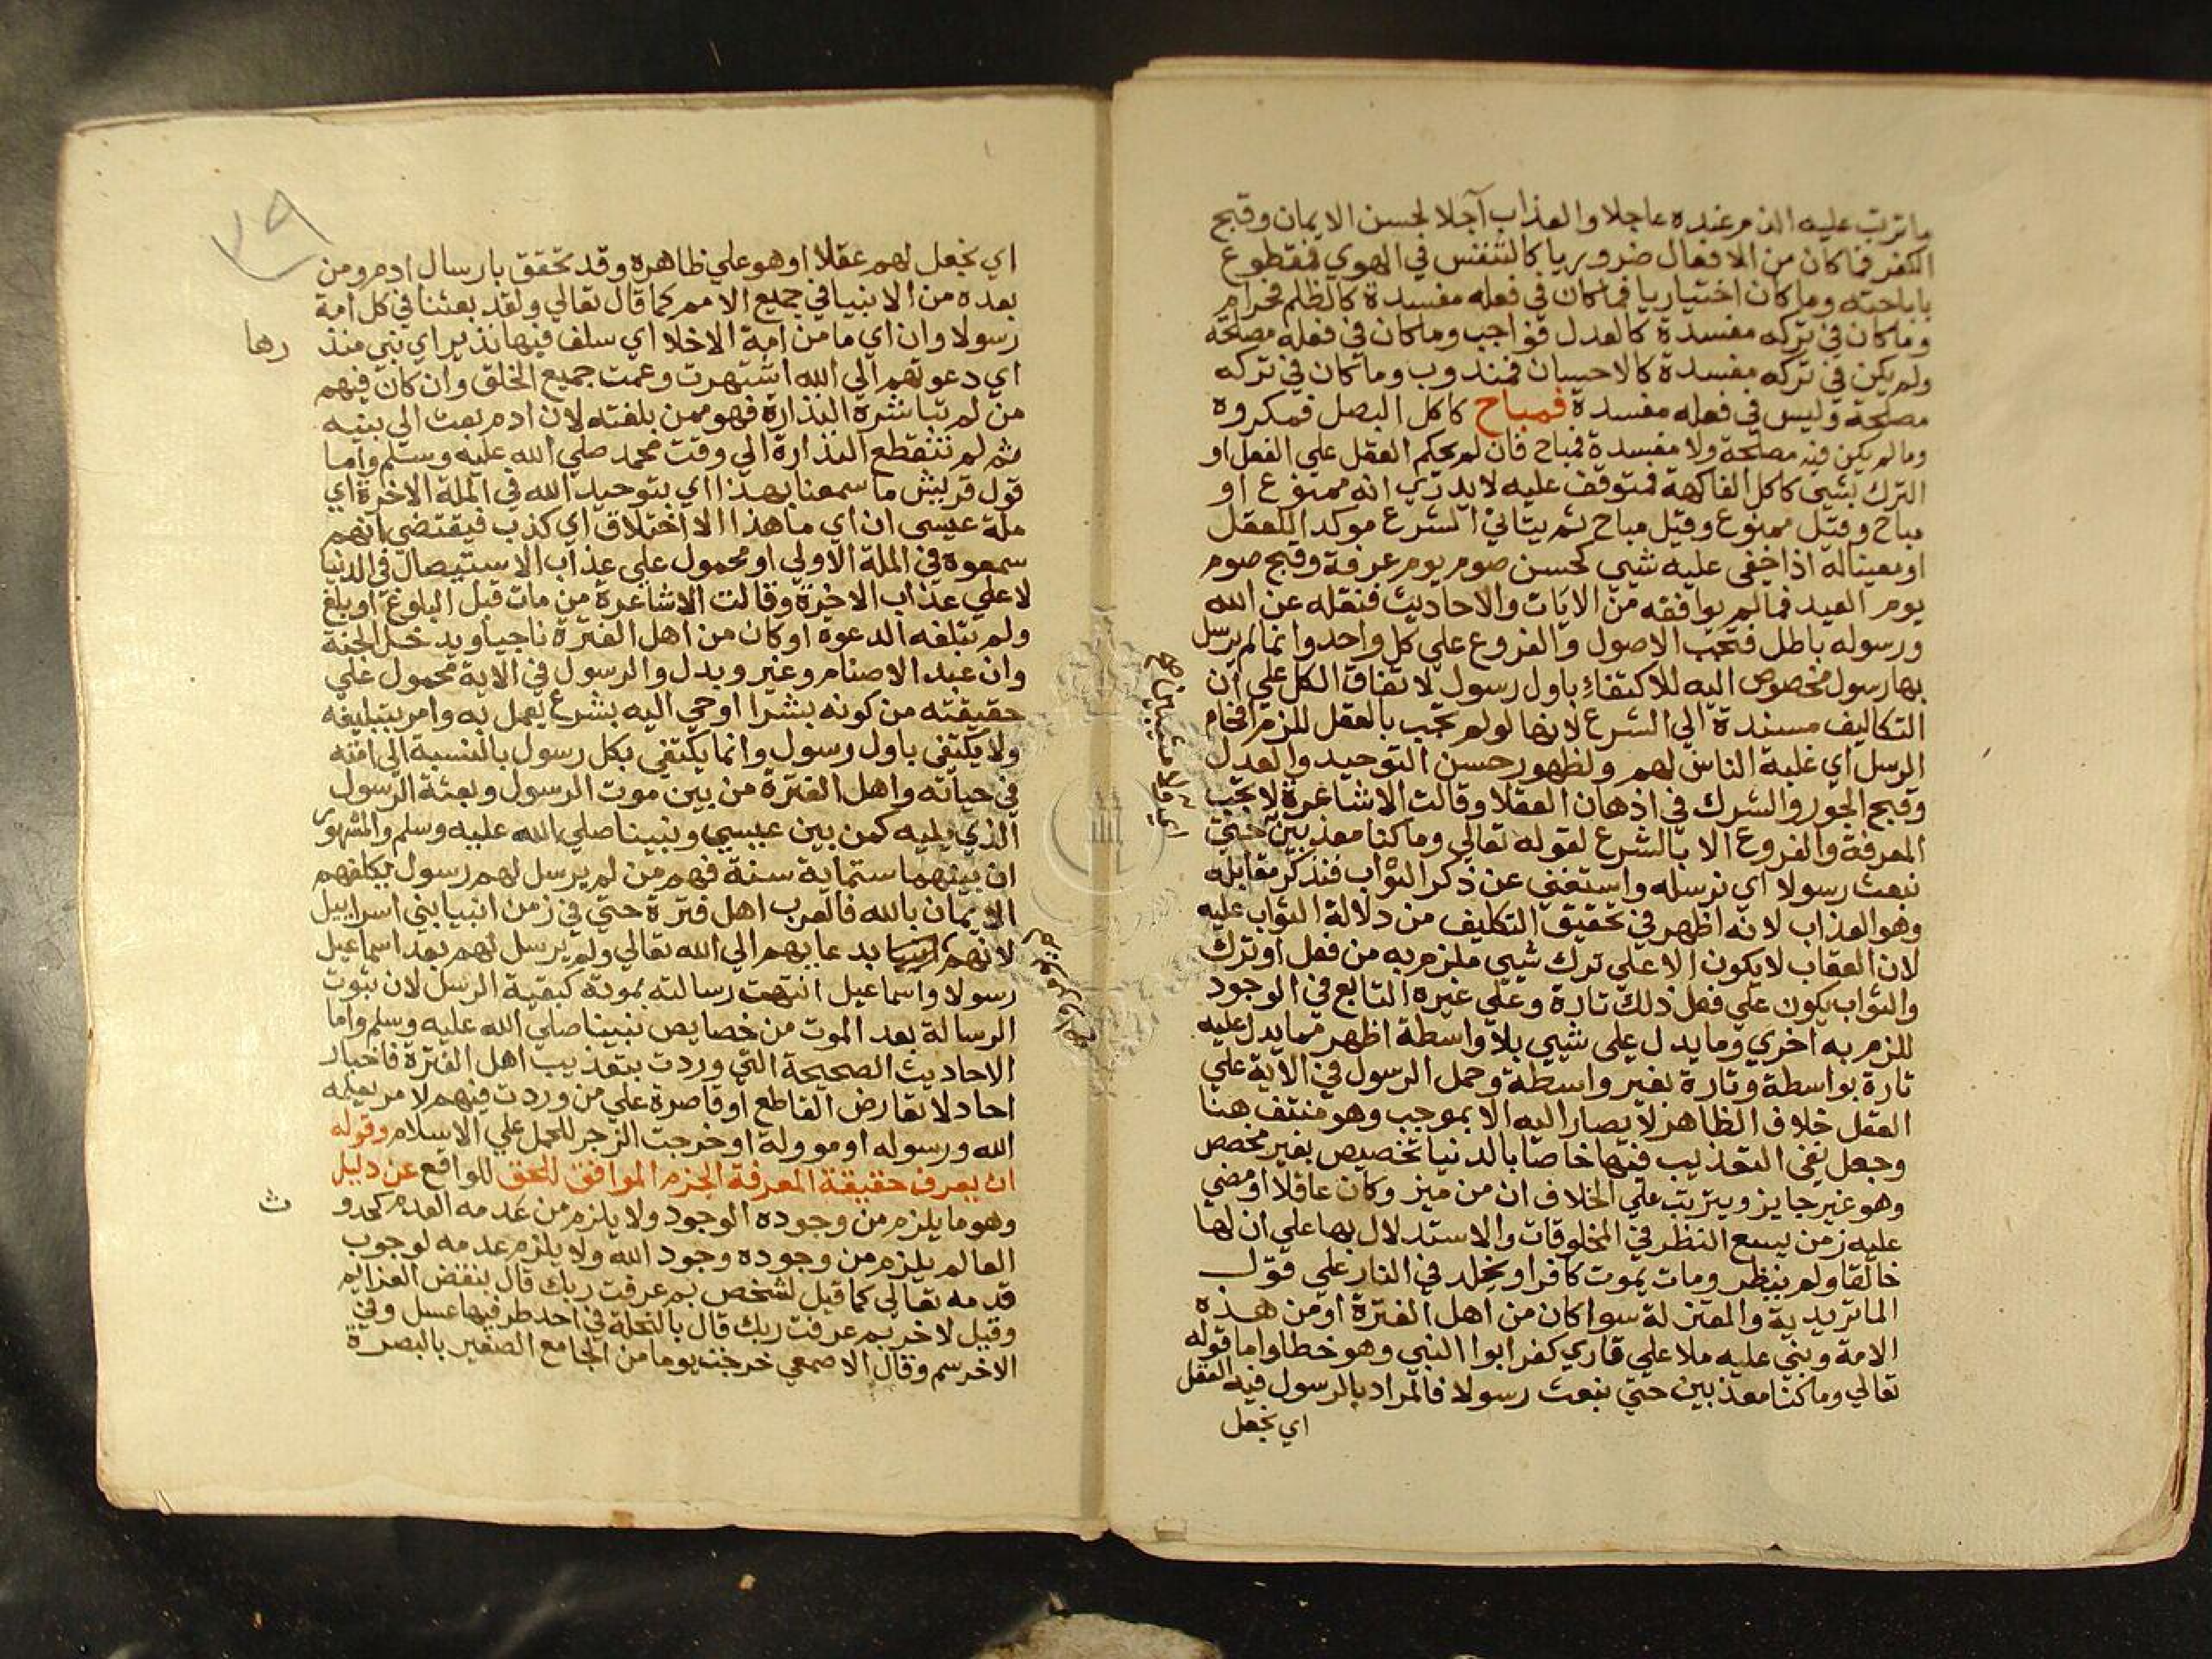 ما ترتب عليه الذم عنده عاجلا والعذاب آجلا لحسن الايمان وقبح
الكفر فما كان من الافعال ضروريا كالتنفس في الهوي فمقطوع
باباحته وما كان اختياريا فما كان في فعله مفسدة كالظلم فحرام
وما كان في تركه مفسدة كالعدل فواجب وما كان في فعله مصلحة
ولم يكن في تركه مفسدة كالاحسان فمندوب وما كان في تركه
مصلحة وليس في فعله مفسدة فمباح كاكل البصل فمكروه
وما لم يكن فيه مصلحة ولا مفسدة فمباح فان لم يحكم العقل علي الفعل او
الترك بشي كاكل الفاكهة فمتوقف عليه لا يدري انه ممنوع او
مباح وقيل ممنوع وقيل مباح ثم يتاني الشرع موكدا للعقل
او معيناله اذا خفي عليه شي كحسن صوم يوم عرفة وقبح صوم
يوم العيد فما لم يوافقه من الايات والاحاديث فنقله عن الله
ورسوله باطل فتجب الاصول والفروع علي كل واحد وانما لم يرسل
بها رسول مخصوص اليه للاكتفاء باول رسول لاتفاق الكل علي ان
التكاليف مسندة الي الشرع لانها لو لم تجب بالعقل للزم افحام
الرسل اي غلبة الناس لهم ولظهور حسن التوحيد والعدل
وقبح الجور والشرك في اذهان العقلا وقالت الاشاعرة لا تجب
المعرفة والفروع الا بالشرع لقوله تعالي وما كنا معذبين حتي
نبعث رسولا اي نرسله واستغني عن ذكر الثواب فنذكر مقابله
وهو العذاب لانه اظهر في تحقيق التكليف من دلالة الثواب عليه
لان العقاب لا يكون الا علي ترك شي ملزم به من فعل او ترك
والثواب يكون علي فعل ذلك تارة وعلي غيره التابع في الوجود
للزم به اخري وما يدل علي شي بلا واسطة اظهر مما يدل عليه
تارة بواسطة وتارة بغير واسطة وحمل الرسول في الاية علي
العقل خلاف الظاهر لا يصار اليه الا بموجب وهو منتف هنا
وجعل نفي التعذيب فيها خاصا بالدنيا تخصيص بغير مخصص
وهو غير جايز ويترتب علي الخلاف ان من ميز وكان عاقلا او مضي
عليه زمن يسع النظر في المخلوقات والاستدلال بها علي ان لها
خالقا ولم ينظر ومات يموت كافرا ويخلد في النار علي قول
الماتريدية والمعتزلة سوا كان من اهل الفترة او من هذه
الامة وبني عليه ملا علي قاري كفر ابوا النبي وهو خطا واما قوله
تعالي وما كنا معذبين حتي نبعث رسولا فالمراد بالرسول فيه العقل
اي نجعل
٧٩
اي نجعل لهم عقلا او هو علي ظاهره وقد تحقق بارسال ادم ومن
بعده من الانبيا في جميع الامم كما قال تعالي ولقد بعثنا في كل امة
رسولا وان اي ما من امة الا خلا اي سلف فيها نذير اي نبي منذ
رها
اي دعوتهم الي الله اشتهرت وعمت جميع الخلق وان كان فيهم
من لم تباشره النذارة فهو ممن بلغته لان ادم بعث الي بنيه
ثم لم تنقطع النذارة الي وقت محمد صلي الله عليه وسلم واما
قول قريش ما سمعنا بهذا اي بتوحيد الله في الملة الاخرة اي
ملة عيسى ان اي ما هذا الا اختلاق اي كذب فيقتضي انهم
سمعوه في الملة الاولي او محمول علي عذاب الاستيصال في الدنيا
لا علي عذاب الاخرة وقالت الاشاعرة من مات قبل البلوغ او بلغ
ولم تبلغه الدعوة او كان من اهل الفترة ناجيا ويدخل الجنة
وان عبد الاصنام وغير وبدل والرسول في الاية محمول علي
حقيقته من كونه بشرا اوحي اليه بشرع يعمل به وامر بتبليغه
ولا يكتفي باول رسول وانما يكتفي بكل رسول بالنسبة الي امته
في حياته واهل الفترة من بين موت الرسول وبعثة الرسول
الذي يليه كمن بين عيسي ونبينا صلي الله عليه وسلم والمشهور
ان بينهما ستماية سنة فهم من لم يرسل لهم رسول يكلفهم
الايمان بالله فالعرب اهل فترة حتي في زمن انبيا بني اسراييل
لانهم بدعايهم الي الله تعالي ولم يرسل لهم بعد اسماعيل
رسولا واسماعيل انتهت رسالته بموته كبقية الرسل لان ثبوت
الرسالة بعد الموت من خصايص نبينا صلي الله عليه وسلم واما
الاحاديث الصحيحة التي وردت بتعذيب اهل الفترة فاخبار
احاد لا تعارض القاطع او قاصرة علي من وردت فيهم لامر يعلمه
الله ورسوله او موولة او خرجت الزجر للحمل علي الاسلام وقوله
ان يعرف حقيقة المعرفة الجزم الموافق للحق للواقع عن دليل
وهو ما يلزم من وجوده الوجود ولا يلزم من عدمه العدم كحدو
ث
العالم يلزم من وجوده وجود الله ولا يلزم عدمه لوجوب
قدمه تعالي كما قيل لشخص بم عرفت ربك قال بنقض العزايم
وقيل لاخر بم عرفت ربك قال بالنحلة في احد طرفيها عسل وفي
الاخر سم وقال الاصمعي خرجت يوما من الجامع الصغير بالبصرة